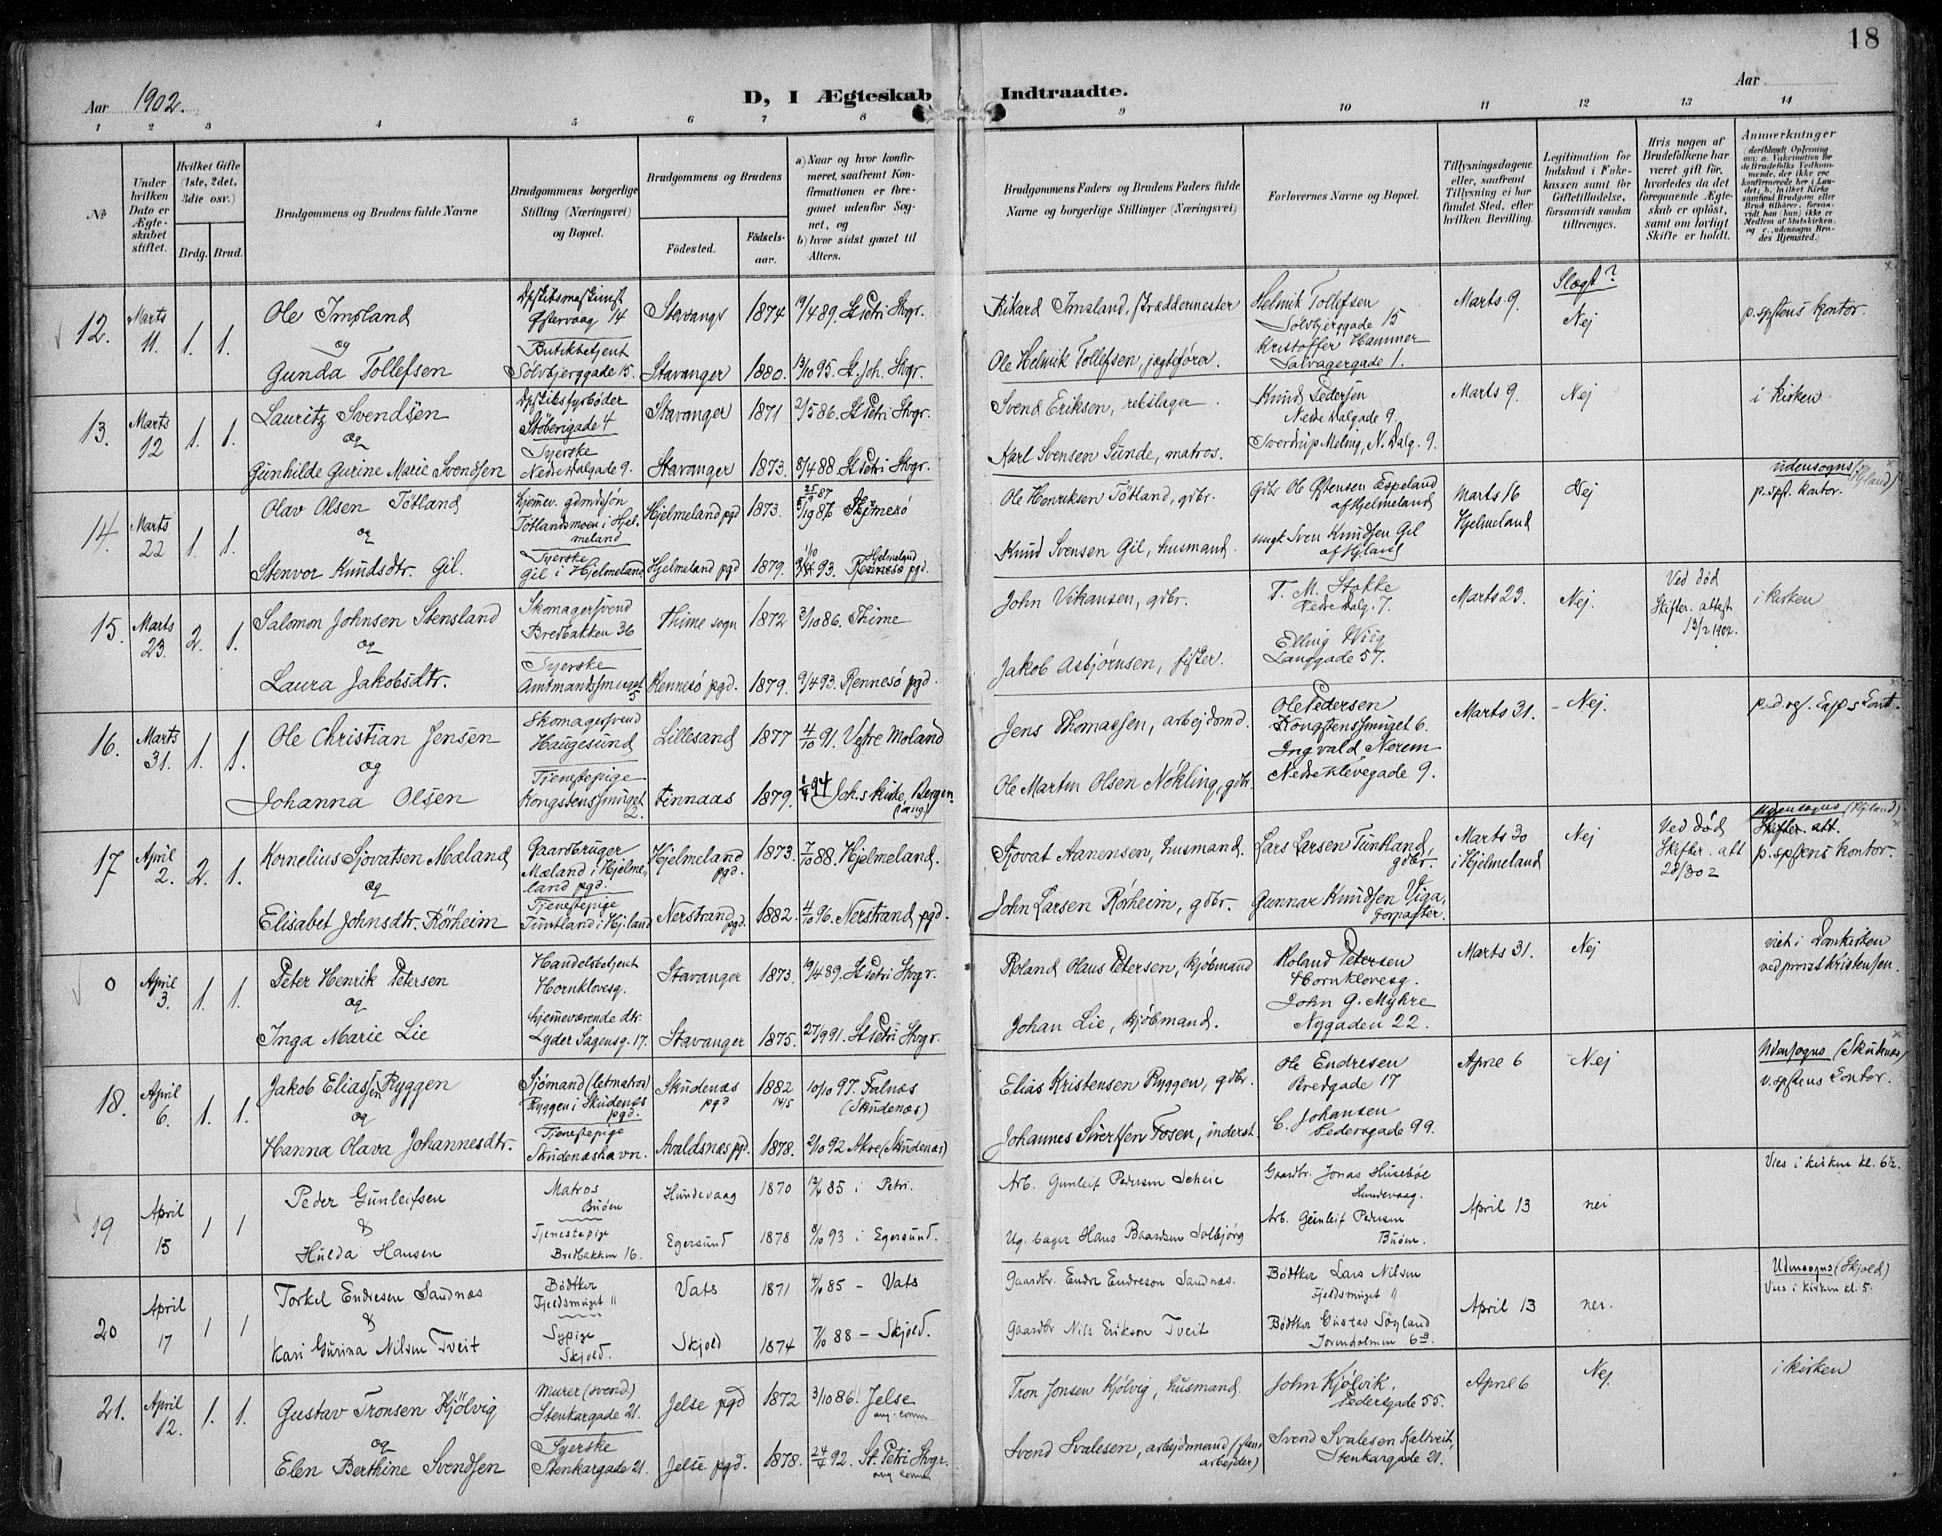 18
Aar 1902.
D, I Ægteskab Indtraadte.
Aar
1 2 3 4 5 6 7 8 9 10 11 12 13 14
No
Under hvilken Dato er Ægteskabet stiftet.
Hvilket Gifte (1ste, 2det, 3die osv.)
Brdg. Brud.
Brudgommens og Brudens fulde Navne
Brudgommens borgerlige Stilling (Næringsvei) og Bopæl.
Brudgommens og Brudens
Födested.
Födsels-aar.
a) Naar og hvor konfirmeret, saafremt Konfirmationen er foregaaet udenfor Sognet, og
b) hvor sidst gaaet til Alters.
Brudgommens Faders og Brudens Faders fulde Navne og borgerlige Stillinger (Næringsvei)
Forlovernes Navne og Bopæl.
Tillysningsdagene eller, saafremt Tillysning ei har fundet Sted, efter hvilken Bevilling.
Legitimation for Indskud i Enkekassen samt for Giftetilladelse, forsaavidt saadan tiltrænges.
Hvis nogen af Brudefolkene har været gift før, hvorledes da det foregaaende Ægteskab er opløst, samt om lovligt Skifte er holdt.
Anmerkninger
12. Marts 11. 1. 1.
Ole Imsland
og
Gunda Tollefsen
Østervaag 14
Butikbetjent
Sölvbjerggade 15.
Stavangr 1874 19/4 89. St Petri Stvgr.
Stavanger 1880. 13/10 95. St. Joh. Stvgr.
Rikard Imsland, skræddermester
Ole Helmik Tollefsen, jægtefører.
Helmik Tollefsen
Sölvbjerggade 15
Kristoffer Hammer
Salvagergade 1.
Marts 9. Slægt? Nej
p. spstens kontor.
13. Marts 12 1. 1.
Lauritz Svendsen
og
Gunhilde Gurine Marie Svendsen
Støberigade 4
Syerske
Nedre Dalgade 9.
Stavanger 1871 2/5 86. St Petri Stvgr.
Stavanger 1873. 8/4 88 St Petri Stvgr.
Svend Eriksen, rebslager
Karl Svensen Sunde, matros.
Knud Pedersen
Nedre Dalgade 9.
Sverdrup Meling, N. Dalg. 9.
Marts 9. Nej i kirken
14. Marts 22 1. 1.
Olav Olsen Tötland
og
Stenvor Knudsdtr. Gil.
hjemmev. gdmdsøn
Tötlandsmoen i Hjelmeland
Syerske
Gil i Hjelmeland
Hjelmeland pgd 1873.
Hjelmeland pgd 1879.
Hjelmeland
Rennesö pgd.
Ole Henriksen Tötland, gdbr.
Knud Svensen Gil, husmand.
Gdbr Ole Østensen Espeland
af Hjelmeland
ungk Sven Knudsen Gil
Marts 16
Hjelmeland
Nej
udensogns
p. spst. kontor.
15. Marts 23. 2. 1.
Salomon Johnsen Stensland
og
Laura Jakobsdtr.
Skomagersvend
Bredbakken 36
Syerske
Amtmandssmuget 5
Thime sogn 1872 3/10 86. Thime
Rennesö pgd. 1879. 9/4 93. Rennesö pgd.
John Vikansen, gdbr.
Jakob Asbjørnsen, fisker.
T. M. Stakke
Nedre Dalg. 7.
Elling Wiig
Langgade 57.
Marts 23. Nej.
Ved død
Skifter. attest
13/2 1902.
i kirken
16. Marts 31. 1. 1.
Ole Christian Jensen
og
Johanna Olsen
Skomagersvend
Haugesund
Tjenestepige
Kongstenssmuget 2.
Lillesand 1877 4/10 91. Vestre Moland
Finnaas 1879. Joh.s kirke, Bergen
Jens Thomassen, arbejdsmd.
Ole Martin Olsen Nökling, gdbr.
Ole Pedersen
Kongstenssmuget 6.
Ingvald Nerem
Nedre Klevegade 9.
Marts 31. - Nej.
17. April 2. 2. 1.
Kornelius Sjovatsen Mæland
og
Elisabet Johnsdtr. Rörheim
Gaardbruger
Mæland i Hjelmeland pgd.
Tjenestepige
Tuntland i Hj.land
Hjelmeland pgd. 1873. 7/10 88. Hjelmeland.
Nerstrand pgd. 1882. 4/10 96. Nerstrand pgd.
Sjovat Aanensen, husmand.
John Larsen Rörheim, gdbr.
Lars Larsen Tuntland, gdbr.
Gunnar Knudsen Viga, forpagter.
Marts 30
i Hjelmeland
Nej
Ved død
Skifter. att
Udensogns (Hjland)
Skifter. att.
p. spstens kontor.
0 April 3. 1. 1.
Peter Henrik Petersen
og
Inga Marie Lie
Handelsbetjent
Hornklovesg.
hjemmeværende dtr.
Lyder Sagensg. 17.
Stavanger 1873. 19/4 89. St Petri Stvgr.
Stavanger 1875. 27/9 91. St Petri Stvgr.
Roland Olaus Petersen, kjöbmand
Johan Lie, kjöbmand.
Roland Petersen
Hornklovesg.
John G. Myhre
Nygaden 22.
Marts 31. Nej
viet i Domkirken
ved prost Kristensen.
18. April 6. 1. 1.
Jakob Eliassøn Ryggen
og
Hanna Olava Johannesdtr.
Sjömand (letmatros)
Ryggen i Skudenes pgd.
Tjenestepige
Skudenæshavn.
Skudenæs pgd 1882 14/5 10/10 97. Falnæs (Skudenæs)
Avaldsnes pgd. 1878. 2/10 92 Akre (Skudenæs)
Elias Kristensen Ryggen, gdbr.
Johannes Sivertsen Fosen, inderst.
Ole Endresen
Bredgade 17
C. Johansen
Pedersgade 99.
April 6 Nej
Udensogns (Skudnæs)
v. spstens kontor.
19 April 15 1 1
Peder Gunleifsen
&
Hulda Hansen
Matros
Buöen
Tjenestepige
Bredbakken 16.
Hundevaag 1870 85 i Petri.
Egersund 1878 8/10 93 i Egersund.
Arb. Gunleif Pedersen Scheie
Ug. bager Hans Baardsen Solbjörg
Gaardbr. Jonas Husebøe
Hundevaag.
Arb. Gunleif Pedersen
Buöen.
April 13 nei
Vies i kirken kl. 6½.
20 April 17 1 1
Torkel Endresen Sandnæs
&
Kari Gurina Nilsen Tveit
Bödtker
Fjeldsmuget 11
Sypige
Skjold.
Vats 1871 4/10 85 - Vats
Skjold 1874 7/10 88 - Skjold.
Gaardbr. Endre Endreson Sandnæs.
Gaardbr Nils Erikson Tveit
Bödtker Lars Nilsen
Fjeldsmuget 9
Bödtker Gustav Söyland
Jorenholmen 6
April 13 nei.
Udensogns (Skjold)
Vies i kirken kl. 5.
21. April 12. 1. 1.
Gustav Tronsen Kjölvig
og
Elen Berthine Svendsen
Murer (svend)
Stenkargade 21.
Syerske
Stenkargade 21.
Jelse pgd 1872 3/10 86! Jelse
Jelse pgd. 1878. 24/4 92. St. Petri Stvgr.
Tron Jonsen Kjölvig, husmand.
Svend Svalesen, arbejdsmand (stenarbejder)
John Kjölvik,
Pedersgade 55.
Svend Svalesen Kaltveit,
Stenkargade 21.
April 6 Nej. i kirken